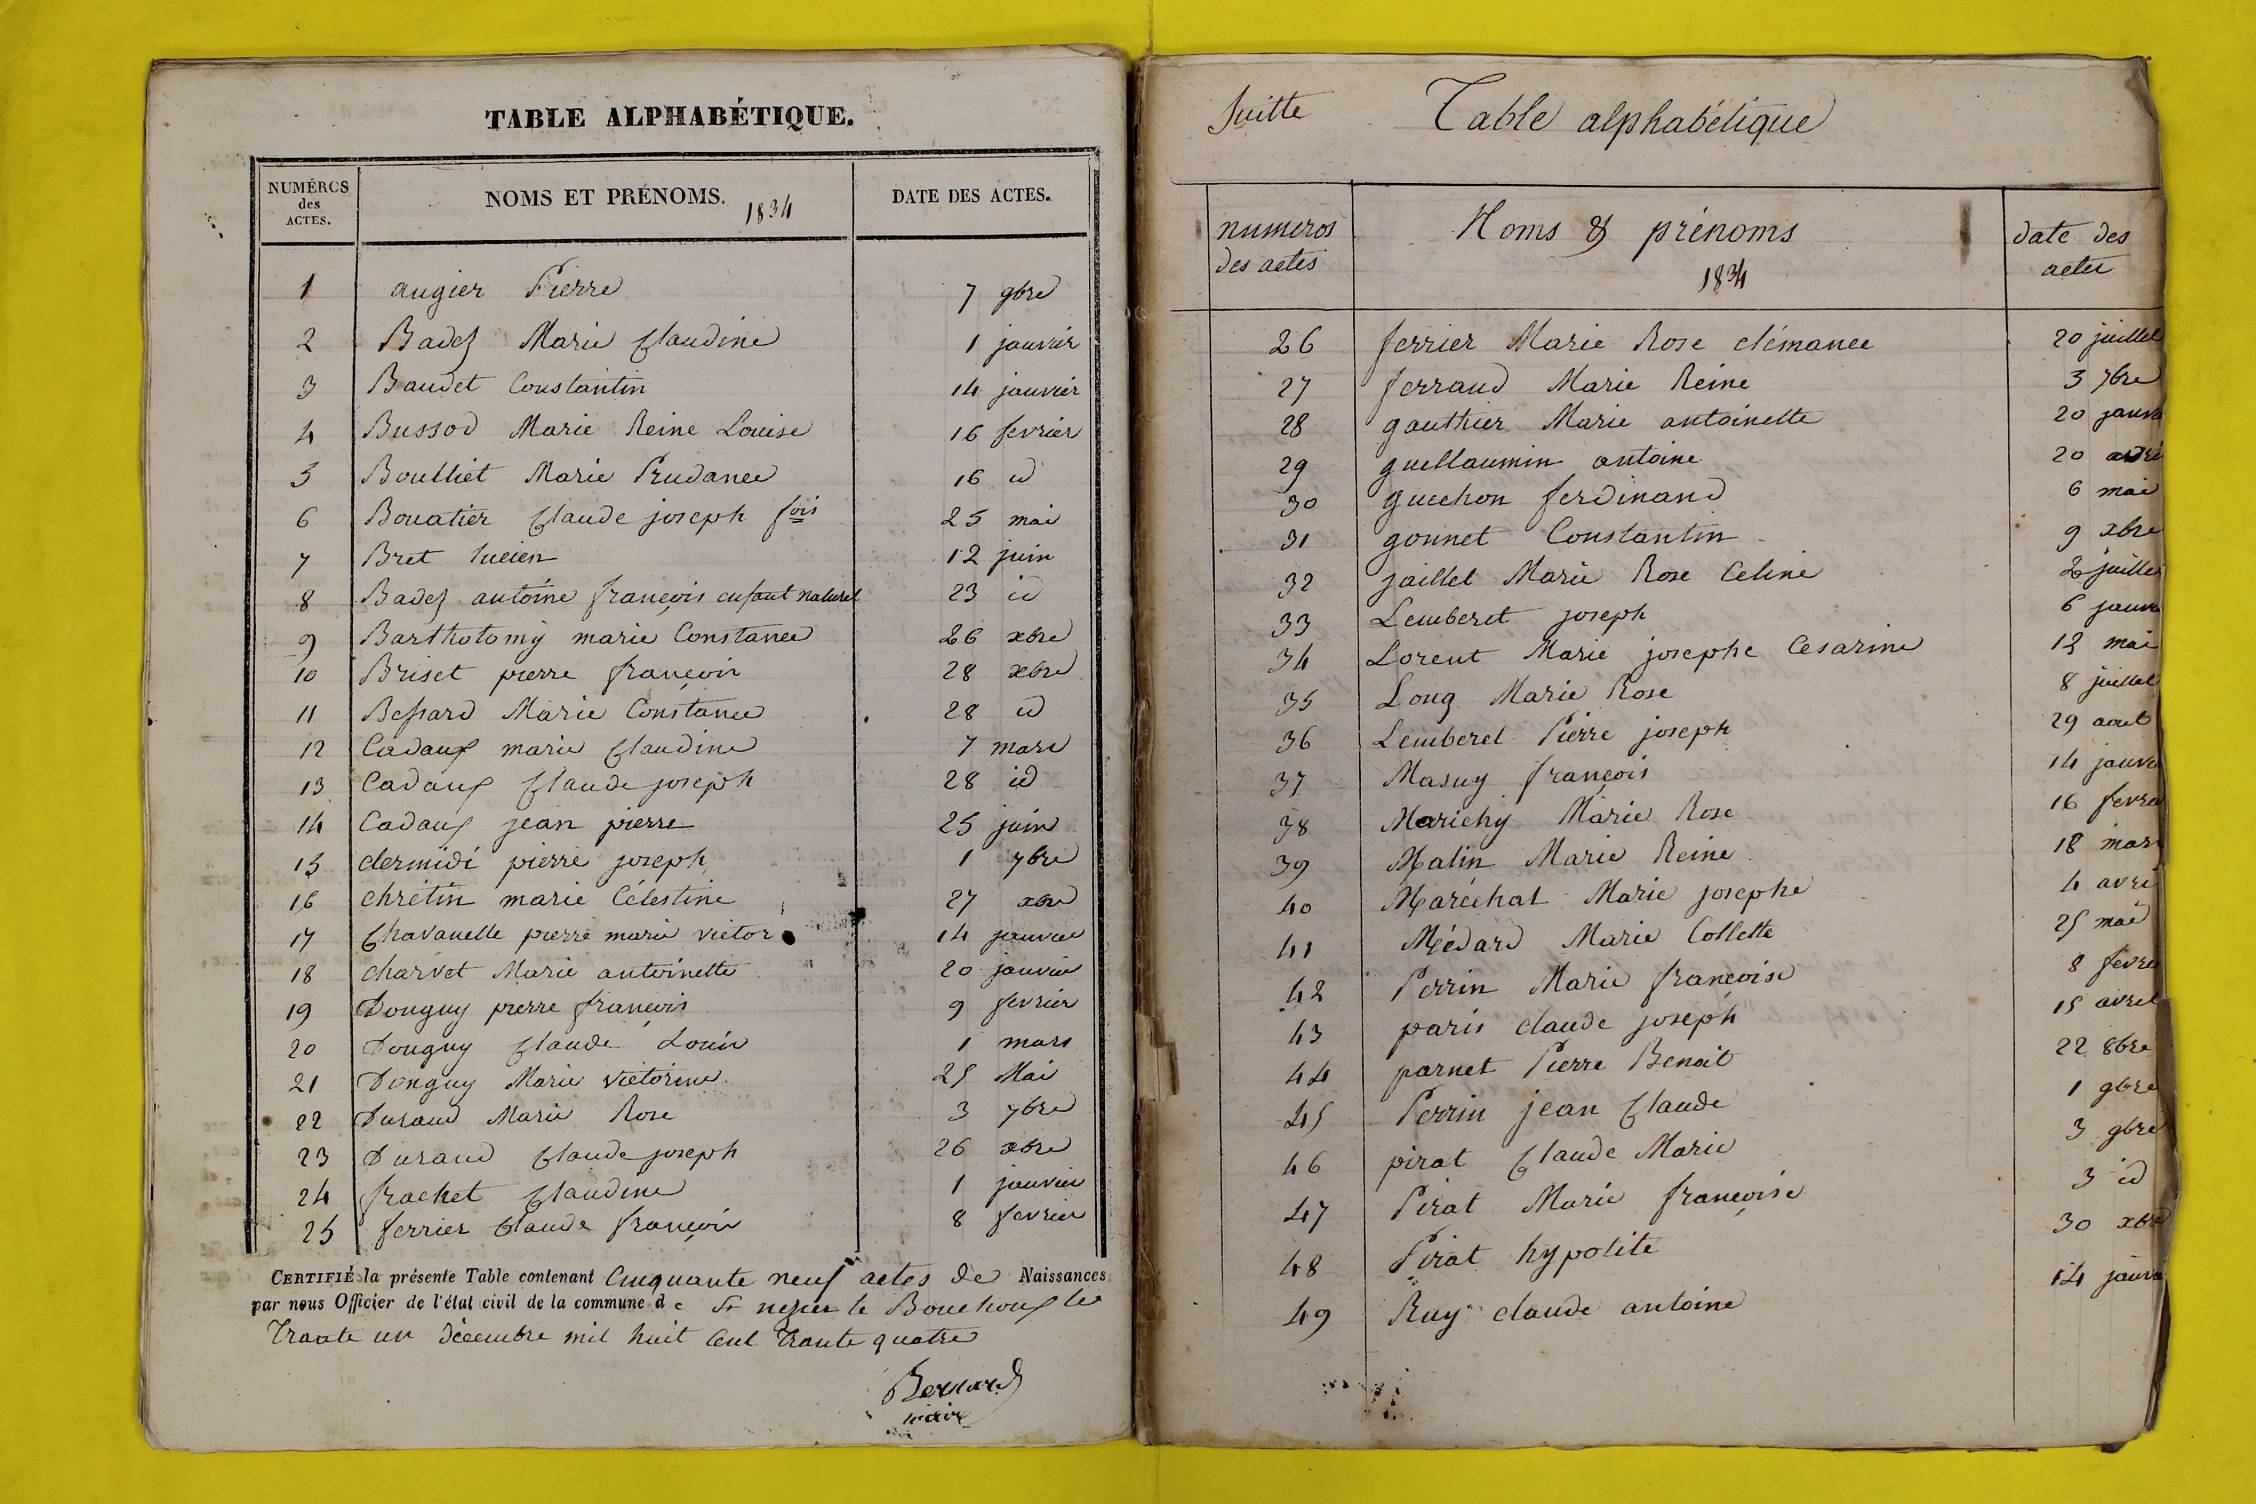 TABLE ALPHABÉTIQUE.
NUMÉROS des ACTES. NOMS ET PRÉNOMS. 1834 DATE DES ACTES.
1 augier Pierre 7 9bre
2 Badez Marie Claudine 1 janvier
3 Baudet Constantin 14 janvier
4 Bussod Marie Reine Louise 16 fevrier
5 Boulliet Marie Prudance 16 id
6 Bouatier Claude joseph fois 25 mai
7 Bret lucien 12 juin
8 Badez antoine françois enfant naturel 23 id
9 Bartholomy marie Constance 26 xbre
10 Briset pierre françois 28 xbre
11 Bessard Marie Constance 28 id
12 Cadaux marie Claudine 7 mars
13 Cadaux Claude joseph 28 id
14 Cadaux jean pierre 25 juin
15 clermidi pierre joseph 1 7bre
16 chrétin marie Célestine 27 xbre
17 Chavanelle pierre marie victor 14 janvier
18 charvet Marie antoinette 20 janvier
19 Donguy pierre françois 9 fevrier
20 Donguy Claude Louis 1 mars
21 Donguy Marie victorine 25 Mai
22 Durand Marie Rose 3 7bre
23 Durand Claude joseph 26 xbre
24 frachet Claudine 1 janvier
25 ferrier Claude françois 8 fevrier
CERTIFIÉ la présente Table contenant Cinquante neuf actes de Naissances
par nous Officier de l'état civil de la commune de St le Bouchoux le
Trante un décembre mil huit Cent Trante quatre
Bernard
maire
Suitte Table alphabétique
numeros des actes Noms & prénoms 1834 date des actes
26 ferrier Marie Rose clémance 20 juillet
27 ferraud Marie Reine 3 7bre
28 gauthier Marie antoinette 20 janv
29 guellaumin antoine 20 avri
30 guichon ferdinand 6 mai
31 gonnet Constantin 9 xbre
32 jaillet Marie Rose Celine 2 juillet
33 Lemberet joseph 6 janv
34 Lorent Marie josephe Cesarine 12 mai
35 Long Marie Rose 8 juillet
36 Lemberet Pierre joseph 29 aout
37 Masuy françois 14 janv
38 Marichy Marie Rose 16 fevri
39 Malin Marie Reine 18 mars
40 Maréchal Marie josephe 4 avri
41 Médard Marie Collette 25 mai
42 Perrin Marie françoise 8 fevri
43 paris claude joseph 15 avril
44 parnet Pierre Benoit 22 8bre
45 Perrin jean Claude 1 9bre
46 pirat Claude Marie 3 9bre
47 Pirat Marie françoise 3 id
48 Pirat hypolite 30 xbre
49 Ruy claude antoine 14 janv